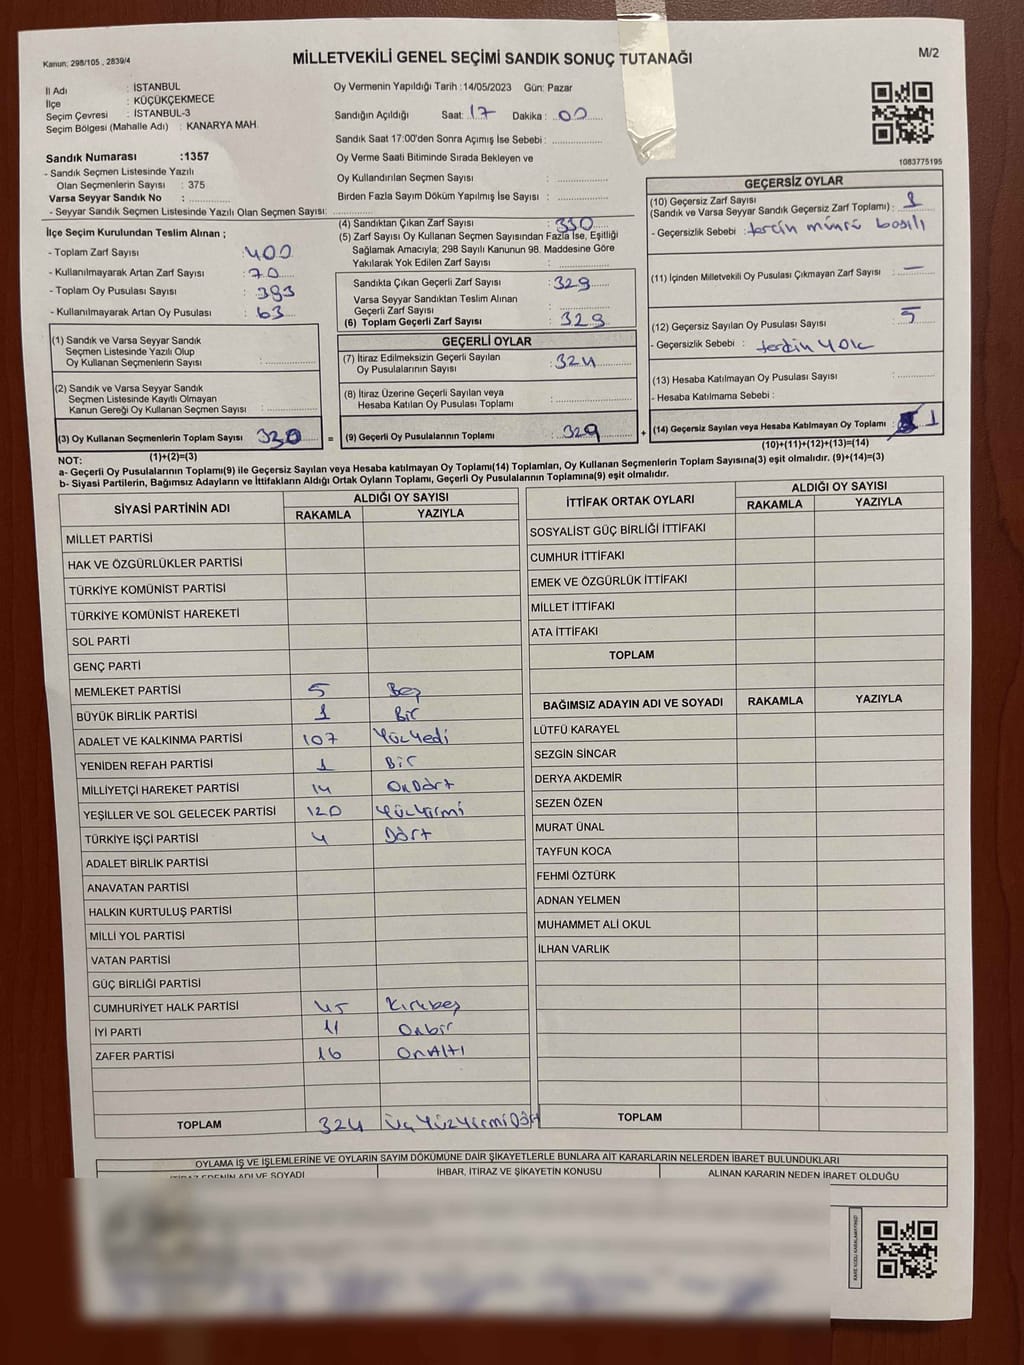 Kanun: 298/105 , 2839/4
MİLLETVEKİLİ GENEL SEÇİMİ SANDIK SONUÇ TUTANAĞI
M/2
İl Adı : İSTANBUL
İlçe : KÜÇÜKÇEKMECE
Seçim Çevresi : İSTANBUL-3
Seçim Bölgesi (Mahalle Adı) : KANARYA MAH.
Sandık Numarası :1357
- Sandık Seçmen Listesinde Yazılı
Olan Seçmenlerin Sayısı : 375
Varsa Seyyar Sandık No :
- Seyyar Sandık Seçmen Listesinde Yazılı Olan Seçmen Sayısı:
Oy Vermenin Yapıldığı Tarih :14/05/2023 Gün: Pazar
Sandığın Açıldığı Saat: 17 Dakika : 00
Sandık Saat 17:00'den Sonra Açımış İse Sebebi :
Oy Verme Saati Bitiminde Sırada Bekleyen ve
Oy Kullandırılan Seçmen Sayısı :
Birden Fazla Sayım Döküm Yapılmış İse Sayısı :
1083775195
İlçe Seçim Kurulundan Teslim Alınan ;
- Toplam Zarf Sayısı : 400
- Kullanılmayarak Artan Zarf Sayısı : 70
- Toplam Oy Pusulası Sayısı : 393
- Kullanılmayarak Artan Oy Pusulası : 63
(1) Sandık ve Varsa Seyyar Sandık
Seçmen Listesinde Yazılı Olup
Oy Kullanan Seçmenlerin Sayısı :
(2) Sandık ve Varsa Seyyar Sandık
Seçmen Listesinde Kayıtlı Olmayan
Kanun Gereği Oy Kullanan Seçmen Sayısı :
(3) Oy Kullanan Seçmenlerin Toplam Sayısı 330
(1)+(2)=(3)
(4) Sandıktan Çıkan Zarf Sayısı : 330
(5) Zarf Sayısı Oy Kullanan Seçmen Sayısından Fazla İse, Eşitliği
Sağlamak Amacıyla; 298 Sayılı Kanunun 98. Maddesine Göre
Yakılarak Yok Edilen Zarf Sayısı :
Sandıkta Çıkan Geçerli Zarf Sayısı : 329
Varsa Seyyar Sandıktan Teslim Alınan
Geçerli Zarf Sayısı :
(6) Toplam Geçerli Zarf Sayısı : 329
GEÇERLİ OYLAR
(7) İtiraz Edilmeksizin Geçerli Sayılan
Oy Pusulalarının Sayısı : 324
(8) İtiraz Üzerine Geçerli Sayılan veya
Hesaba Katılan Oy Pusulası Toplamı :
= (9) Geçerli Oy Pusulalarının Toplamı : 329 +
GEÇERSİZ OYLAR
(10) Geçersiz Zarf Sayısı
(Sandık ve Varsa Seyyar Sandık Geçersiz Zarf Toplamı) : 1
- Geçersizlik Sebebi : tercin mührü basılı
(11) İçinden Milletvekili Oy Pusulası Çıkmayan Zarf Sayısı : —
(12) Geçersiz Sayılan Oy Pusulası Sayısı : 5
- Geçersizlik Sebebi : tercin yok
(13) Hesaba Katılmayan Oy Pusulası Sayısı :
- Hesaba Katılmama Sebebi :
(14) Geçersiz Sayılan veya Hesaba Katılmayan Oy Toplamı : 1
(10)+(11)+(12)+(13)=(14)
NOT:
a- Geçerli Oy Pusulalarının Toplamı(9) ile Geçersiz Sayılan veya Hesaba katılmayan Oy Toplamı(14) Toplamları, Oy Kullanan Seçmenlerin Toplam Sayısına(3) eşit olmalıdır. (9)+(14)=(3)
b- Siyasi Partilerin, Bağımsız Adayların ve İttifakların Aldığı Ortak Oyların Toplamı, Geçerli Oy Pusulalarının Toplamına(9) eşit olmalıdır.
SİYASİ PARTİNİN ADI ALDIĞI OY SAYISI
RAKAMLA YAZIYLA
MİLLET PARTİSİ
HAK VE ÖZGÜRLÜKLER PARTİSİ
TÜRKİYE KOMÜNİST PARTİSİ
TÜRKİYE KOMÜNİST HAREKETİ
SOL PARTİ
GENÇ PARTİ
MEMLEKET PARTİSİ 5 Beş
BÜYÜK BİRLİK PARTİSİ 1 Bir
ADALET VE KALKINMA PARTİSİ 107 Yüzyedi
YENİDEN REFAH PARTİSİ 1 Bir
MİLLİYETÇİ HAREKET PARTİSİ 14 OnDört
YEŞİLLER VE SOL GELECEK PARTİSİ 120 Yüzyirmi
TÜRKİYE İŞÇİ PARTİSİ 4 Dört
ADALET BİRLİK PARTİSİ
ANAVATAN PARTİSİ
HALKIN KURTULUŞ PARTİSİ
MİLLİ YOL PARTİSİ
VATAN PARTİSİ
GÜÇ BİRLİĞİ PARTİSİ
CUMHURİYET HALK PARTİSİ 45 Kırkbeş
İYİ PARTİ 11 Onbir
ZAFER PARTİSİ 16 OnAltı
TOPLAM 324 ÜçYüzYirmiDört
İTTİFAK ORTAK OYLARI ALDIĞI OY SAYISI
RAKAMLA YAZIYLA
SOSYALİST GÜÇ BİRLİĞİ İTTİFAKI
CUMHUR İTTİFAKI
EMEK VE ÖZGÜRLÜK İTTİFAKI
MİLLET İTTİFAKI
ATA İTTİFAKI
TOPLAM
BAĞIMSIZ ADAYIN ADI VE SOYADI RAKAMLA YAZIYLA
LÜTFÜ KARAYEL
SEZGİN SİNCAR
DERYA AKDEMİR
SEZEN ÖZEN
MURAT ÜNAL
TAYFUN KOCA
FEHMİ ÖZTÜRK
ADNAN YELMEN
MUHAMMET ALİ OKUL
İLHAN VARLIK
TOPLAM
OYLAMA İŞ VE İŞLEMLERİNE VE OYLARIN SAYIM DÖKÜMÜNE DAİR ŞİKAYETLERLE BUNLARA AİT KARARLARIN NELERDEN İBARET BULUNDUKLARI
İTİRAZ EDENİN ADI VE SOYADI İHBAR, İTİRAZ VE ŞİKAYETİN KONUSU ALINAN KARARIN NEDEN İBARET OLDUĞU